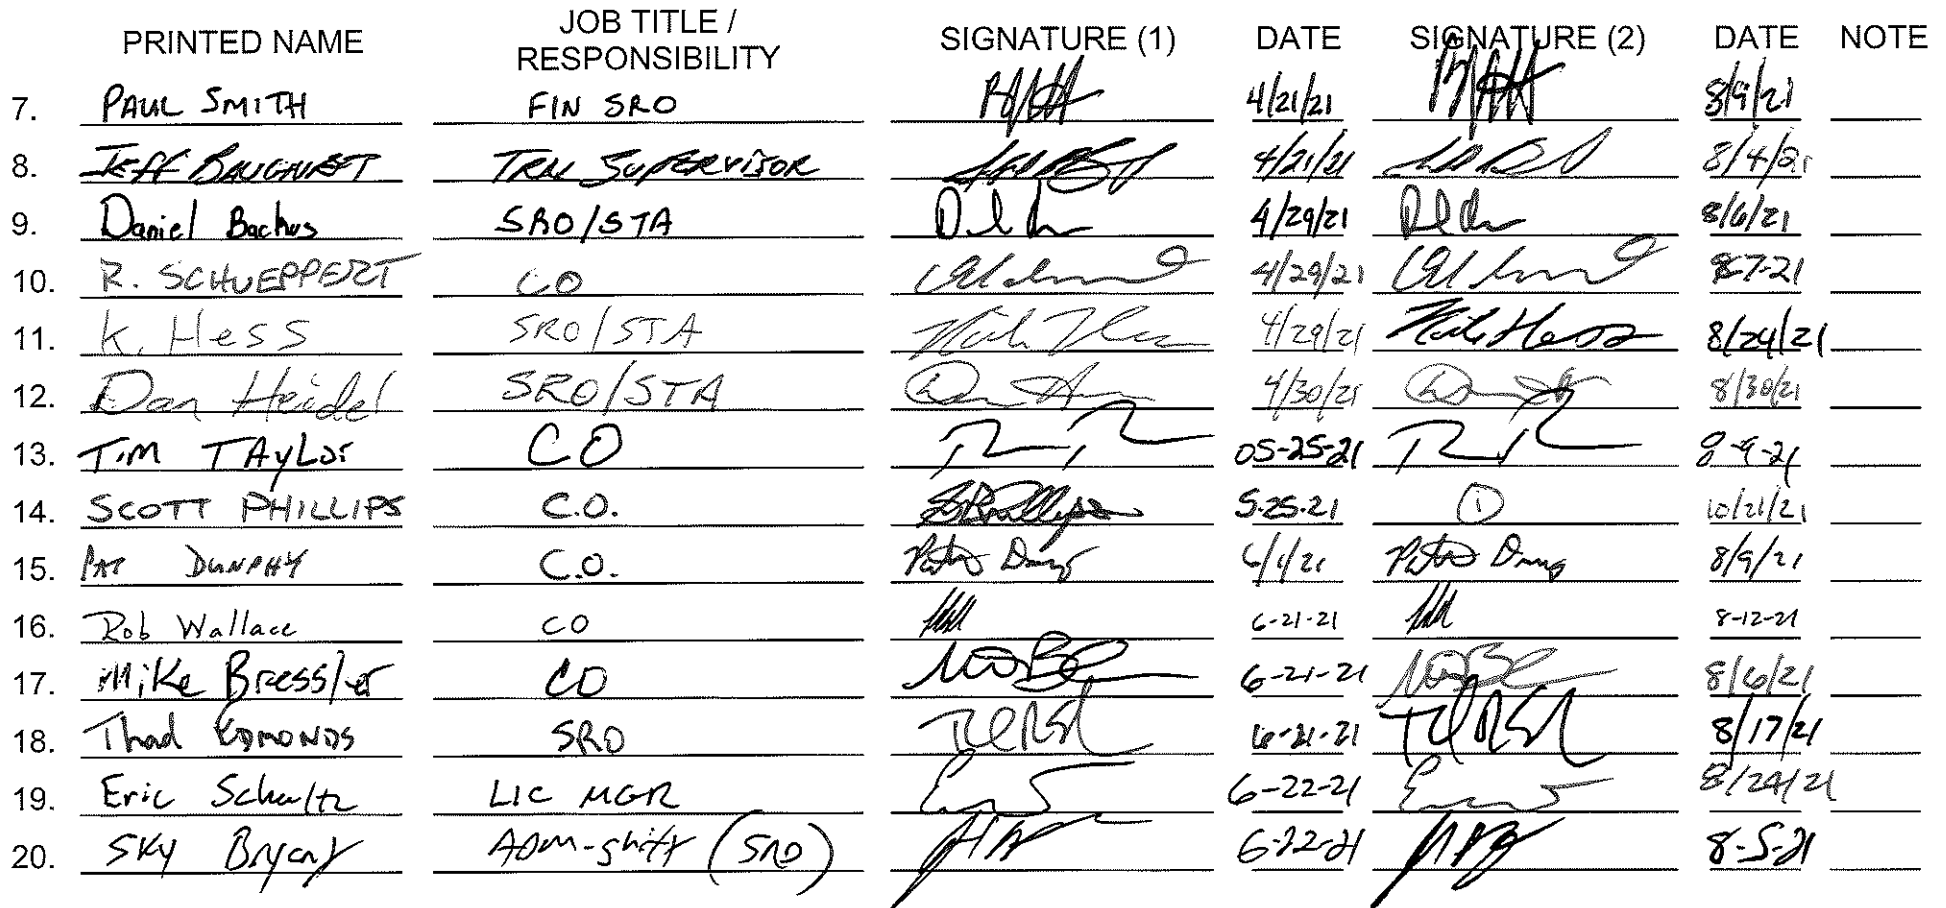 PRINTED NAME JOB TITLE / RESPONSIBILITY SIGNATURE (1) DATE SIGNATURE (2) DATE NOTE
7. PAUL SMITH FIN SRO 4/21/21 8/9/21
8. JEFF TRN SUPERVISOR 4/21/21 8/4/21
9. Daniel Bachus SRO/STA 4/29/21 8/6/21
10. R. SCHUEPPERT CO 4/29/21 8-7-21
11. K. Hess SRO/STA 4/29/21 8/24/21
12. Dan Heidel SRO/STA 4/30/21 8/30/21
13. Tim TAyLor CO 05-25-21 8-9-21
14. SCOTT PHILLIPS C.O. 5-25-21 1 10/21/21
15. PAT DUNPHY C.O. 6/1/21 8/9/21
16. Rob Wallace CO 6-21-21 8-12-21
17. Mike Bressler CO 6-21-21 8/6/21
18. Thad EDMONDS SRO 6-21-21 8/17/21
19. Eric Schultz LIC MGR 6-22-21 8/24/21
20. SKY Bryant ADM-shift (SRO) 6-22-21 8-5-21